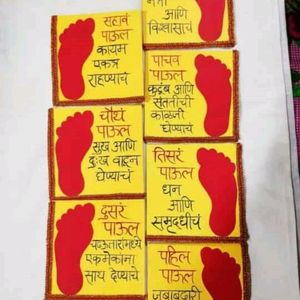 सहावे
पाऊल
कायम
एकत्र
राहण्याचं
आणि
विश्वासाचं
चौथं
पाऊल
सुख आणि
दुःख वाटून
घेण्याचं
पाचवं
पाऊल
कुटुंब आणि
संततीची
काळजी
घेण्याचं
दुसरं
पाऊल
एकमेकांना
साथ देण्याचं
तिसरं
पाऊल
धन
आणि
समृद्धीचं
पहिलं
पाऊल
जबाबदारी